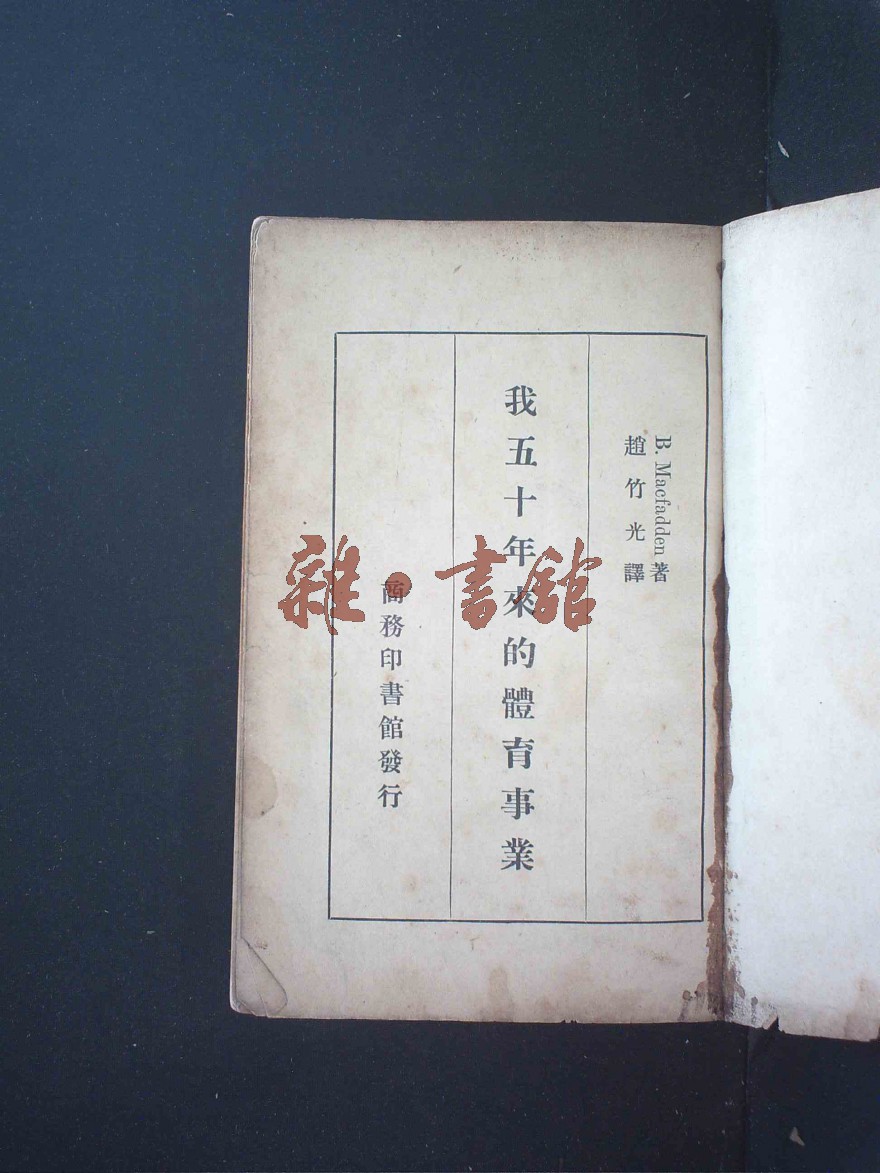 B. Macfadden 著
趙竹光譯
我五十年來的體育事業
商務印書館發行
雜·書館